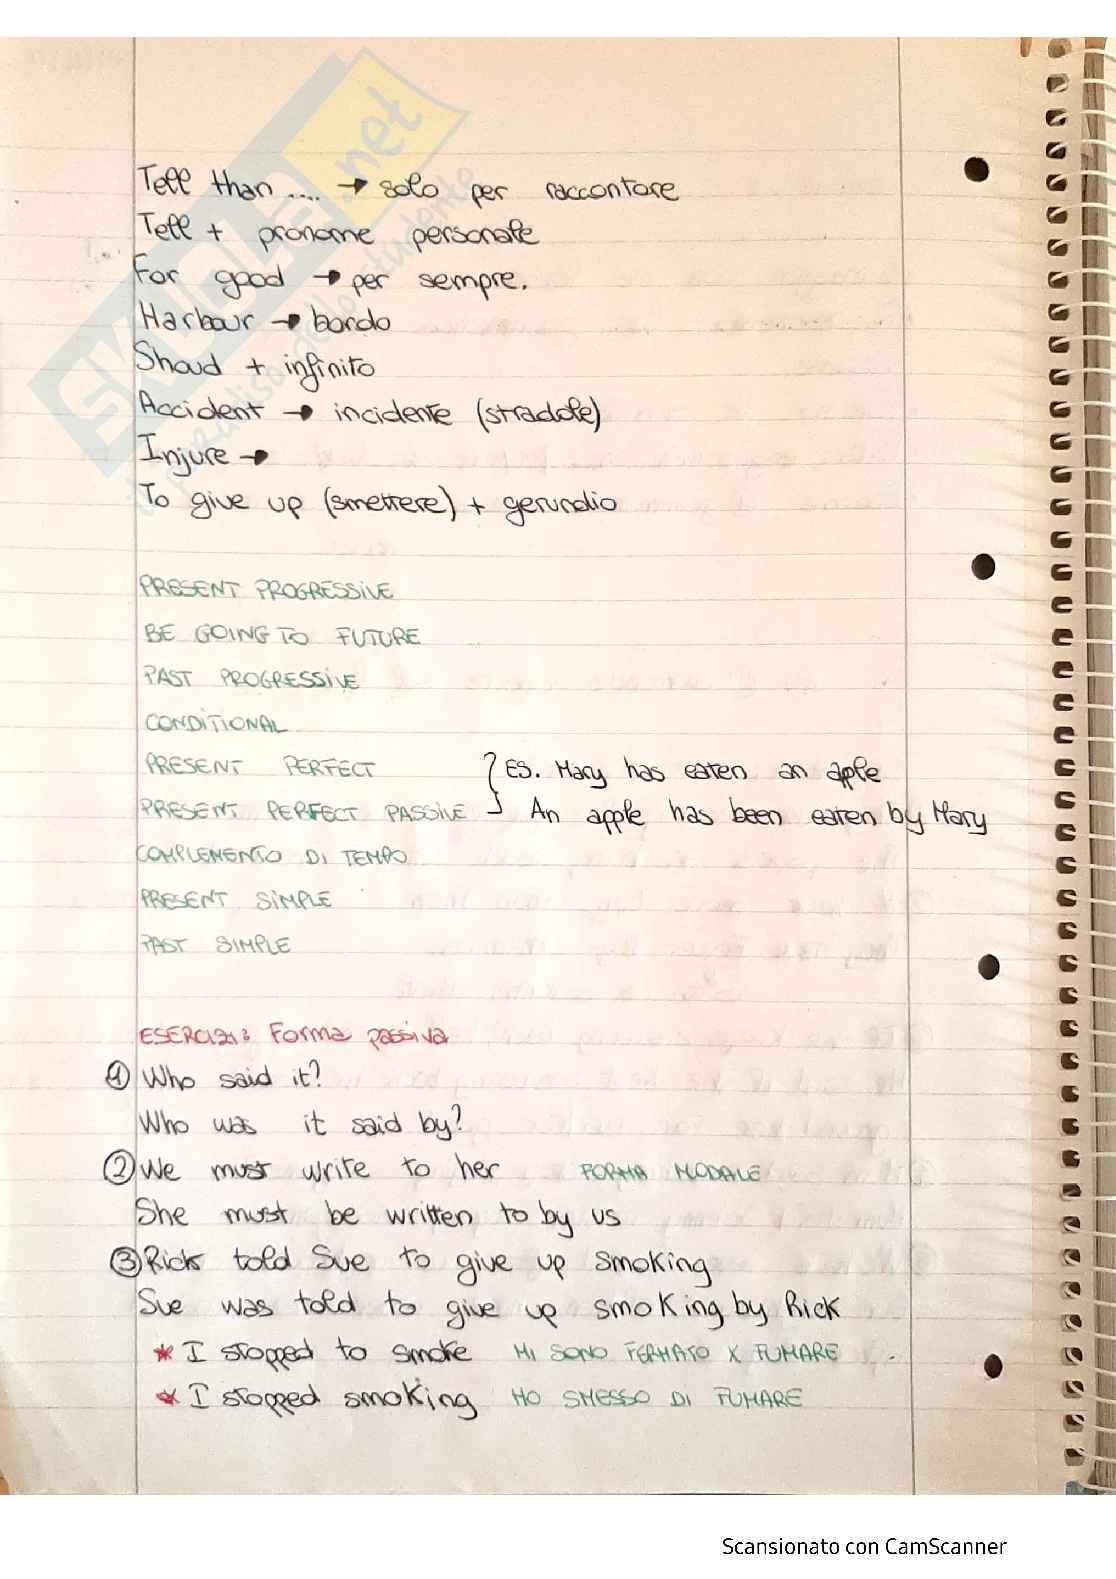 SKUOLA.net
il paradiso dello studente
Tell than .... → solo per raccontare
Tell + pronome personale
For good → per sempre.
Harbour → bordo
Shoud + infinito
Accident → incidente (stradale)
Injure →
To give up (smettere) + gerundio
PRESENT PROGRESSIVE
BE GOING TO FUTURE
PAST PROGRESSIVE
CONDITIONAL
PRESENT PERFECT } ES. Mary has eaten an aple
PRESENT PERFECT PASSIVE An apple has been eaten by Mary
COMPLEMENTO DI TEMPO
PRESENT SIMPLE
PAST SIMPLE
ESERCIZI: Forma passiva
① Who said it?
Who was it said by?
② We must write to her FORMA MODALE
She must be written to by us
③ Rick told Sue to give up smoking
Sue was told to give up smoking by Rick
* I stopped to smoke MI SONO FERMATO X FUMARE
* I stopped smoking HO SMESSO DI FUMARE
Scansionato con CamScanner